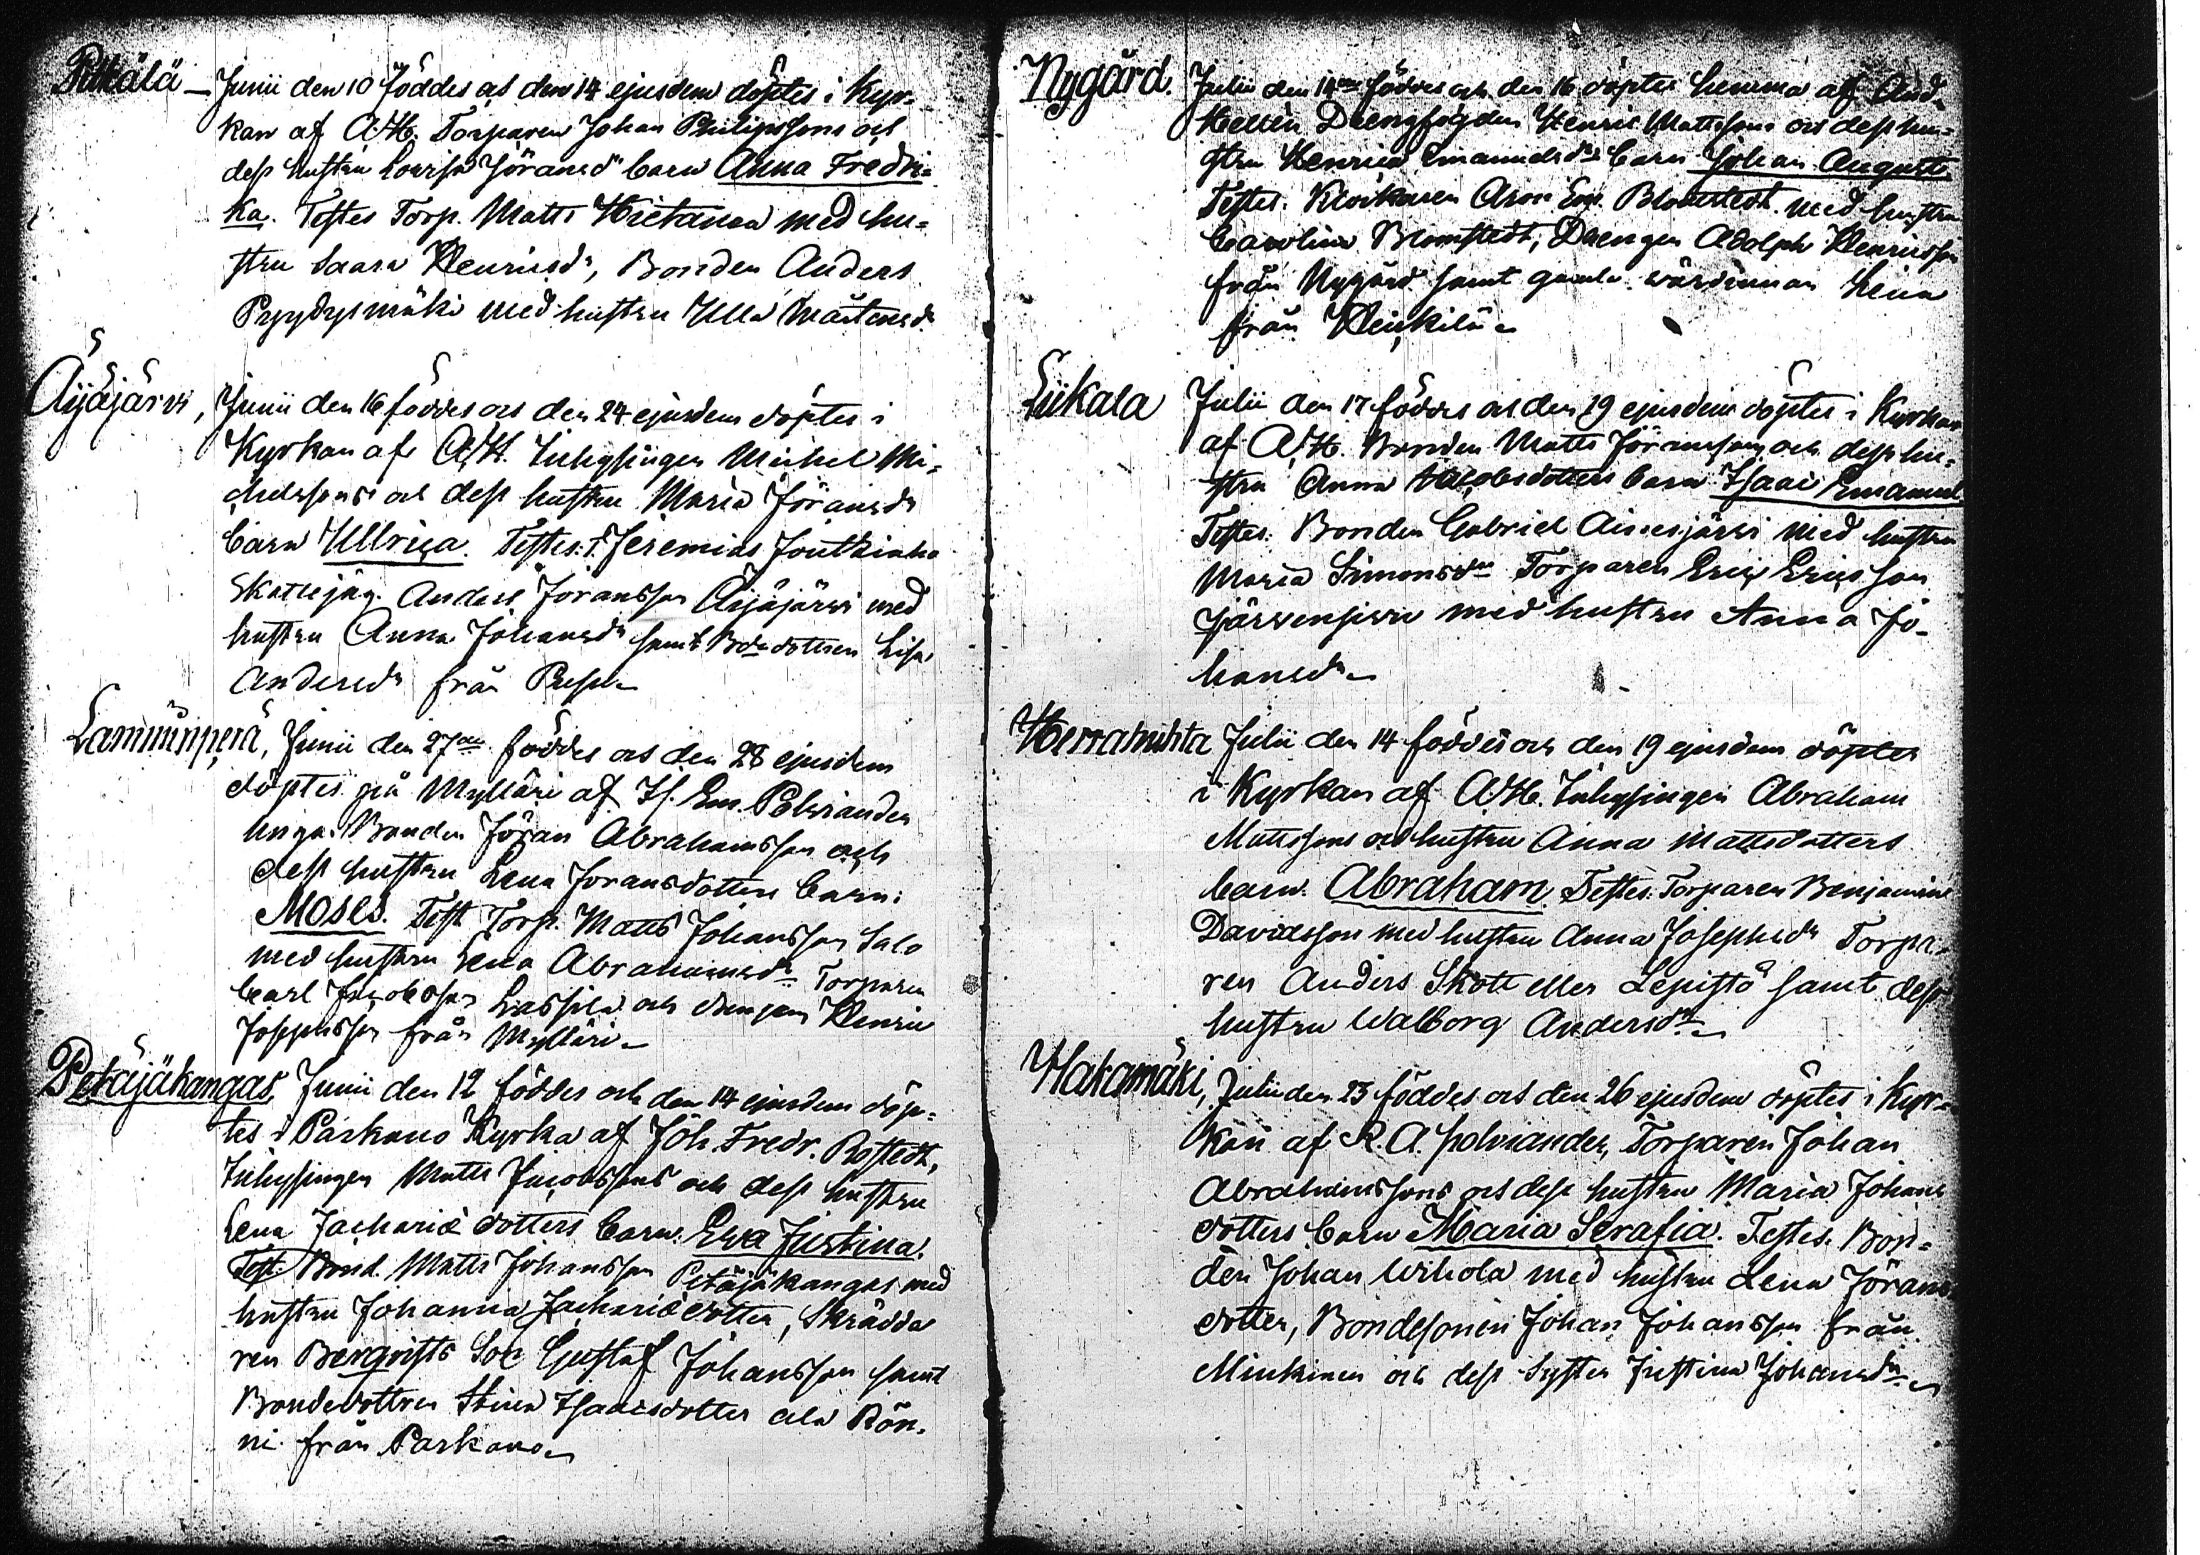 Pitkälä — Junii den 10 föddes och den 14 ejusdem döptes i Kyr=
kan af A.H. Torparen Johan Philipssons och
dess hustru Lovisa Jöransdr barn Anna Fredri=
ka. Testes Torp. Matts Hietanen med hu=
stru Saara Henricsdr, Bonden Anders
Pyydysmäki med hustru Ulla Mårtensdr
Äijäjärvi, Junii den 16 föddes och den 24 ejusdem döptes i
Kyrkan af A.H. Inhysingen Michel Mi=
chelssons och dess hustru Maria Jöransdr
barn Ullrica. Testes: Jeremias
Anders Joransson Äijäjärvi med
hustru Anna Johansdr samt dottren Lisa
Andersdr från
Lamminperä, Junii den 27de föddes och den 28 ejusdem
döptes på Mylläri af Is. Em. Polviander
unga Bonden Jöran Abrahamsson och
dess hustru Lena Joransdotters barn:
Moses. Test. Torp. Matts Johansson Salo
med hustru Lena Abrahamsdr Torparen
Carl Jacobsson Lassila och drengen Henric
Josephsson från Mylläri
Petäjäkangas, Junii den 12 föddes och den 14 ejusdem döp=
tes i Parkano Kyrka af Joh. Fredr. Rostedt,
Inhysingen Matts Jacobssons och dess hustru
Lena Zachariæ dotters barn. Eva Justina.
Test: Bond. Matts Johansson Petäjäkangas med
hustru Johanna Zachariædotter, Skrädda
ren Bergqvists Son Gustaf Johansson samt
Bondedottren Stina Isaacsdotter ala Rön=
ni från Parkano
Nygård. Julii den 14de föddes och den 16 döptes hemma af And.
Hellén Drengfogden Henric Mattssons och dess hu=
stru Henrica Emanuelsdrs barn Johan August.
Testes. Klockaren Aron Em. Blomstedt med hustru
Carolina Blomstedt, Drengen Adolph Henricsson
från Nygård samt gamla värdinnan Lena
från Heickilä
Liikala Julii den 17 föddes och den 19 ejusdem döptes i Kyrkan
af A.H. Bonden Matts Jöranssons och dess hu=
stru Anna Jacobsdotters barn Isaac Emanuel
Testes: Bonden Gabriel Ainesjärvi med hustru
Maria Simonsdr Torparen Eric Ericsson
Järvensivu med hustru Anna Jo=
hansdr
Herrainahta Julii den 14 föddes och den 19 ejusdem döptes
i Kyrkan af A.H. Inhysingen Abraham
Mattssons och hustru Anna Mattsdotters
barn. Abraham. Testes: Torparen Benjamin
Davidsson med hustru Anna Josephsdr Torpa=
ren Anders Skott eller Lepistö samt dess
hustru Walborg Andersdr
Hakamäki, Julii den 23 föddes och den 26 ejusdem döptes i Kyr=
kan af K.A. Polviander, Torparen Johan
Abrahamssons och dess hustru Maria Johans
dotters barn Maria Serafia. Testes. Bon=
den Johan Wihola med hustru Lena Jörans
dotter, Bondesonen Johan Johansson från
Minkinen och dess Syster Justina Johansdr